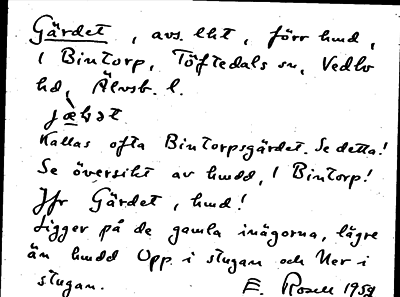 Gärdet, avs. lht, förr hmd,
1 Bintorp, Töftedals sn, Vedbo
hd, Älvsb. l.
Kallas ofta Bintorpsgärdet. Se detta!
Se översikt av hmdd, 1 Bintorp!
Jfr Gärdet, hmd!
Ligger på de gamla inägorna, lägre
än hmdd Opp i stugan och Ner i
stugan. E. Rosell 1959